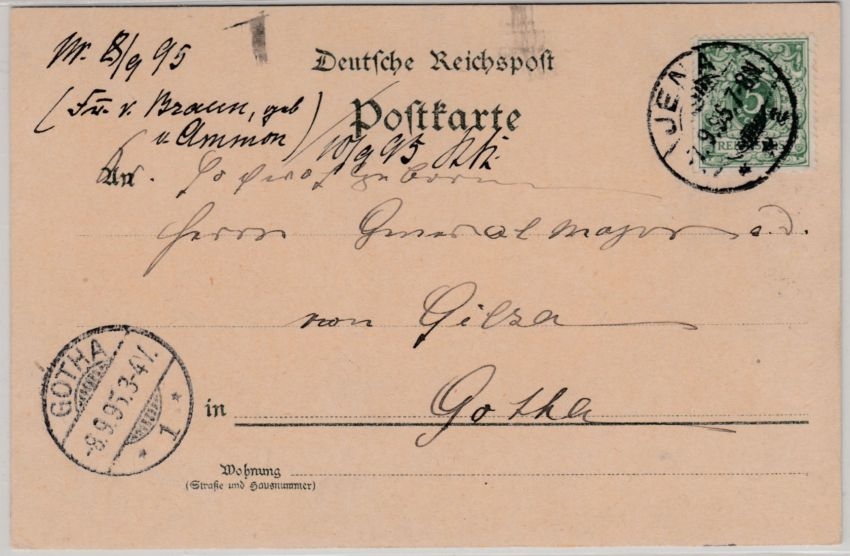 8/9 95
Deutsche Reichspost
(Fr. v. Braun, geb
v. Ammon)
Postkarte
10/9 95
JENA
7-8N
*
5
An
Hochwohlgeboren
Herrn Generalmajor a. d.
von Gilsa
GOTHA
-8.9.95.3-4V.
* 1 *
in Gotha
Wohnung
(Straße und Hausnummer)